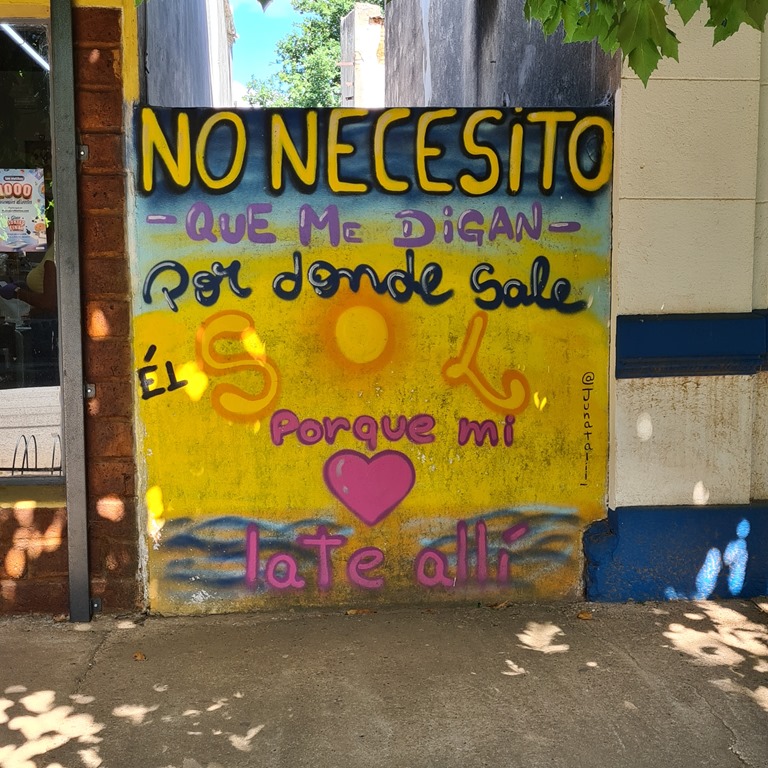 NO NECESITO
-QUE ME DIGAN-
Por donde sale
ÉL SOL
Porque mi
late allí
@Junatalii_
1000